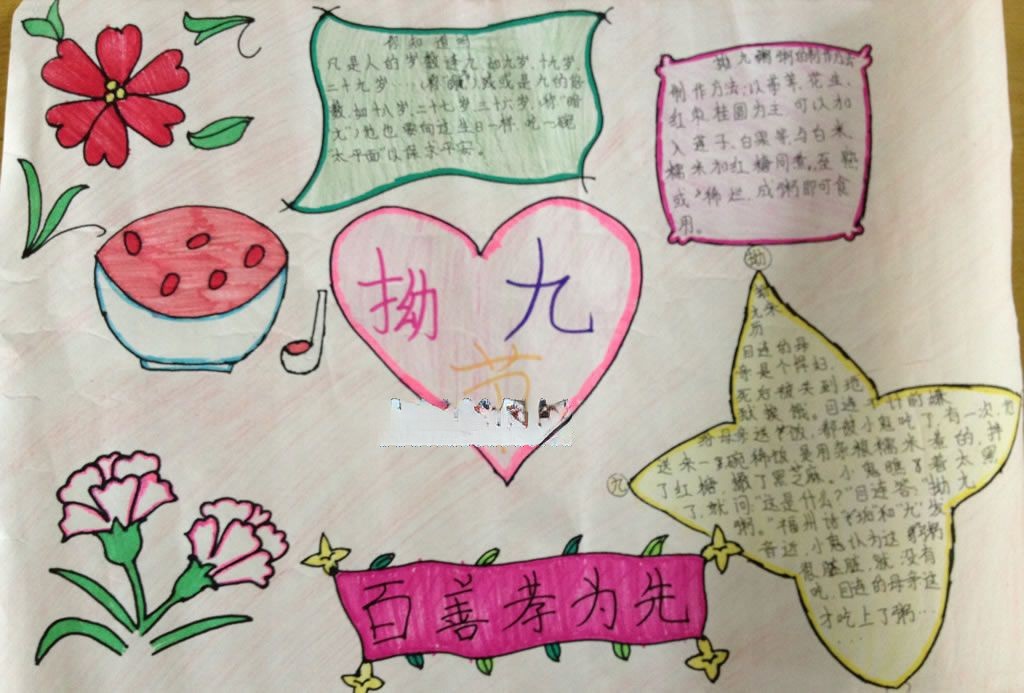 你知道吗
凡是人的岁数逢九,如九岁、十九岁、
二十九岁……(称"明九")或或是九的倍
数,如十八岁、二十七岁、三十六岁,(称"暗
九")他也要向过生日一样,吃一碗
"太平面"以保求平安。
拗九粥粥的制作方法
制作方法:以荸荠、花生、
红枣、桂圆为主,可以加
入莲子、白果等,与白米、
糯米和红糖同煮,至熟
或稀烂,成粥即可食
用。
拗
九
节
拗
九
拗
九来
历
目连的母
母是个悍妇,
死后被关到地
狱挨饿。目连
给母亲送饭,都被小鬼吃了,有一次,
送来一碗稀饭,是用
了红糖,撒了黑芝麻。小鬼瞧着太黑
了,就问:"这是什么?"目连答:"拗九
粥。"福州话"垢"和"九"发
音近,小鬼认为这粥
很脏脏,就没有
吃,目连的母亲这
才吃上了粥…
...
百善孝为先